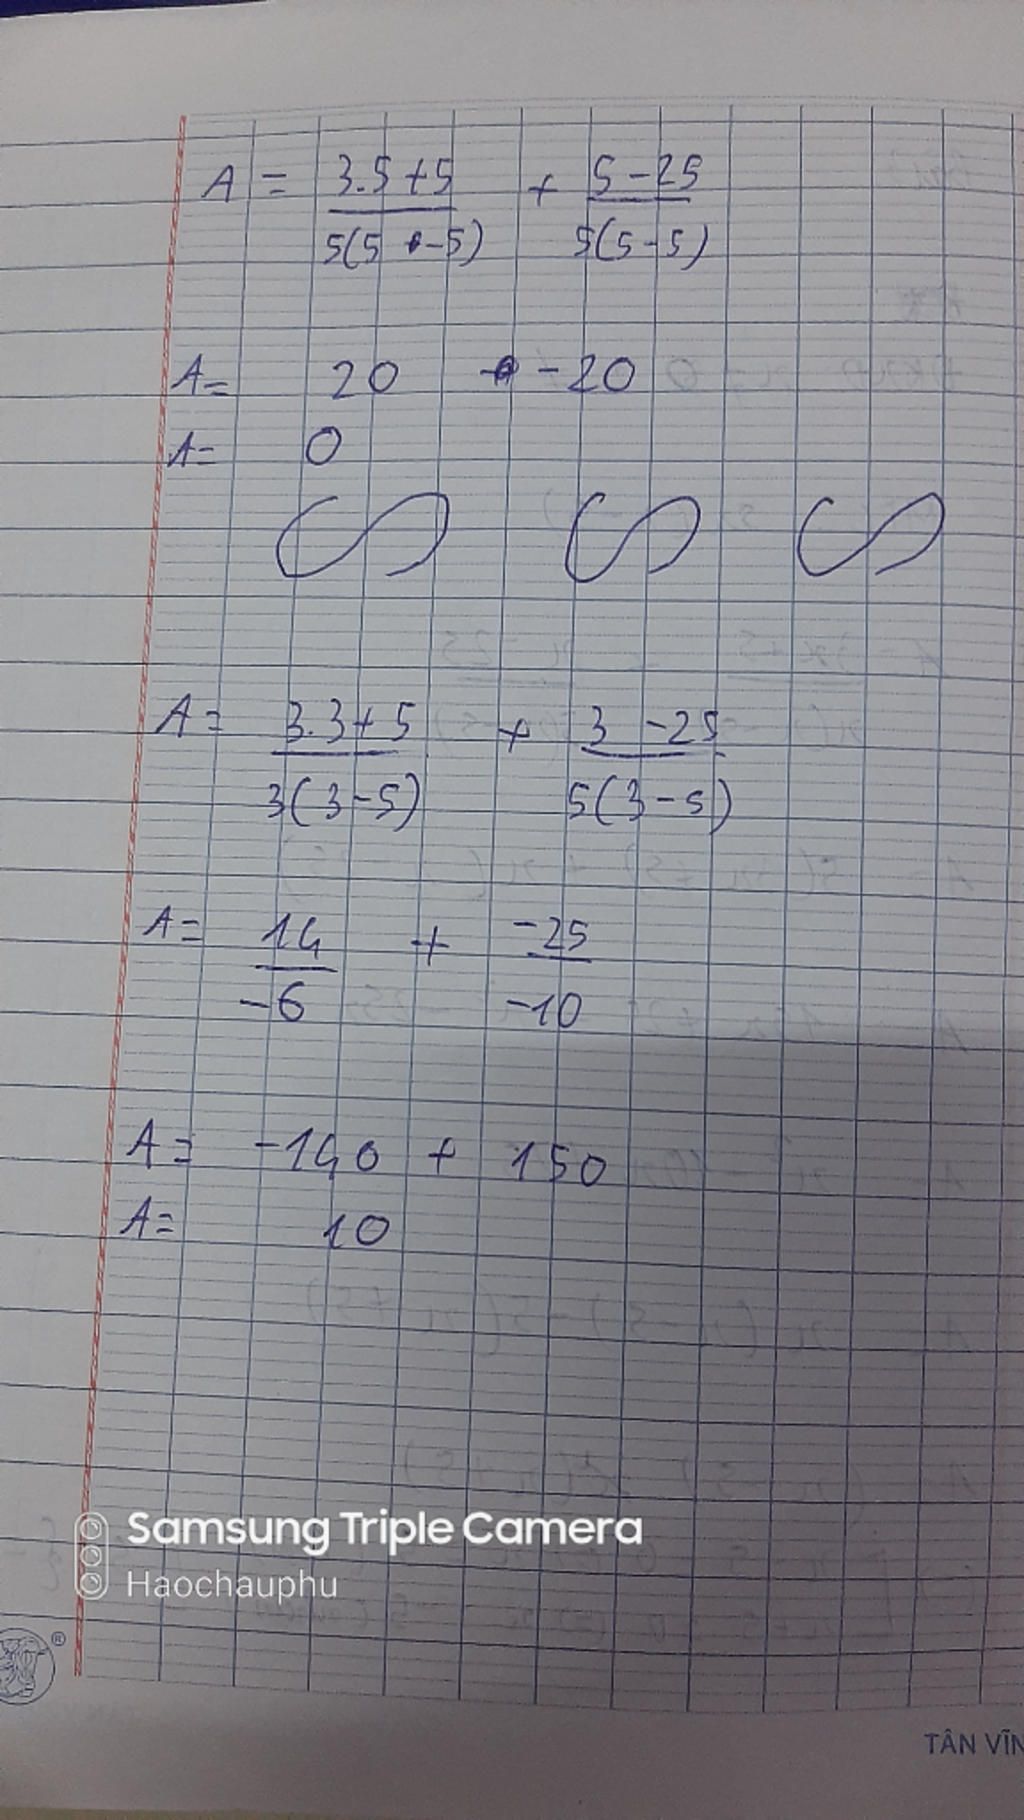 A = (3.5+5)/(5(5-5)) + (5-25)/(5(5-5))
A= 20 + -20
A= 0
A= (3.3+5)/(3(3-5)) + (3 -25)/(5(3-5))
A= 14/-6 + -25/-10
A= -140 + 150
A= 10
Samsung Triple Camera
Haochauphu
®
TÂN VĨN